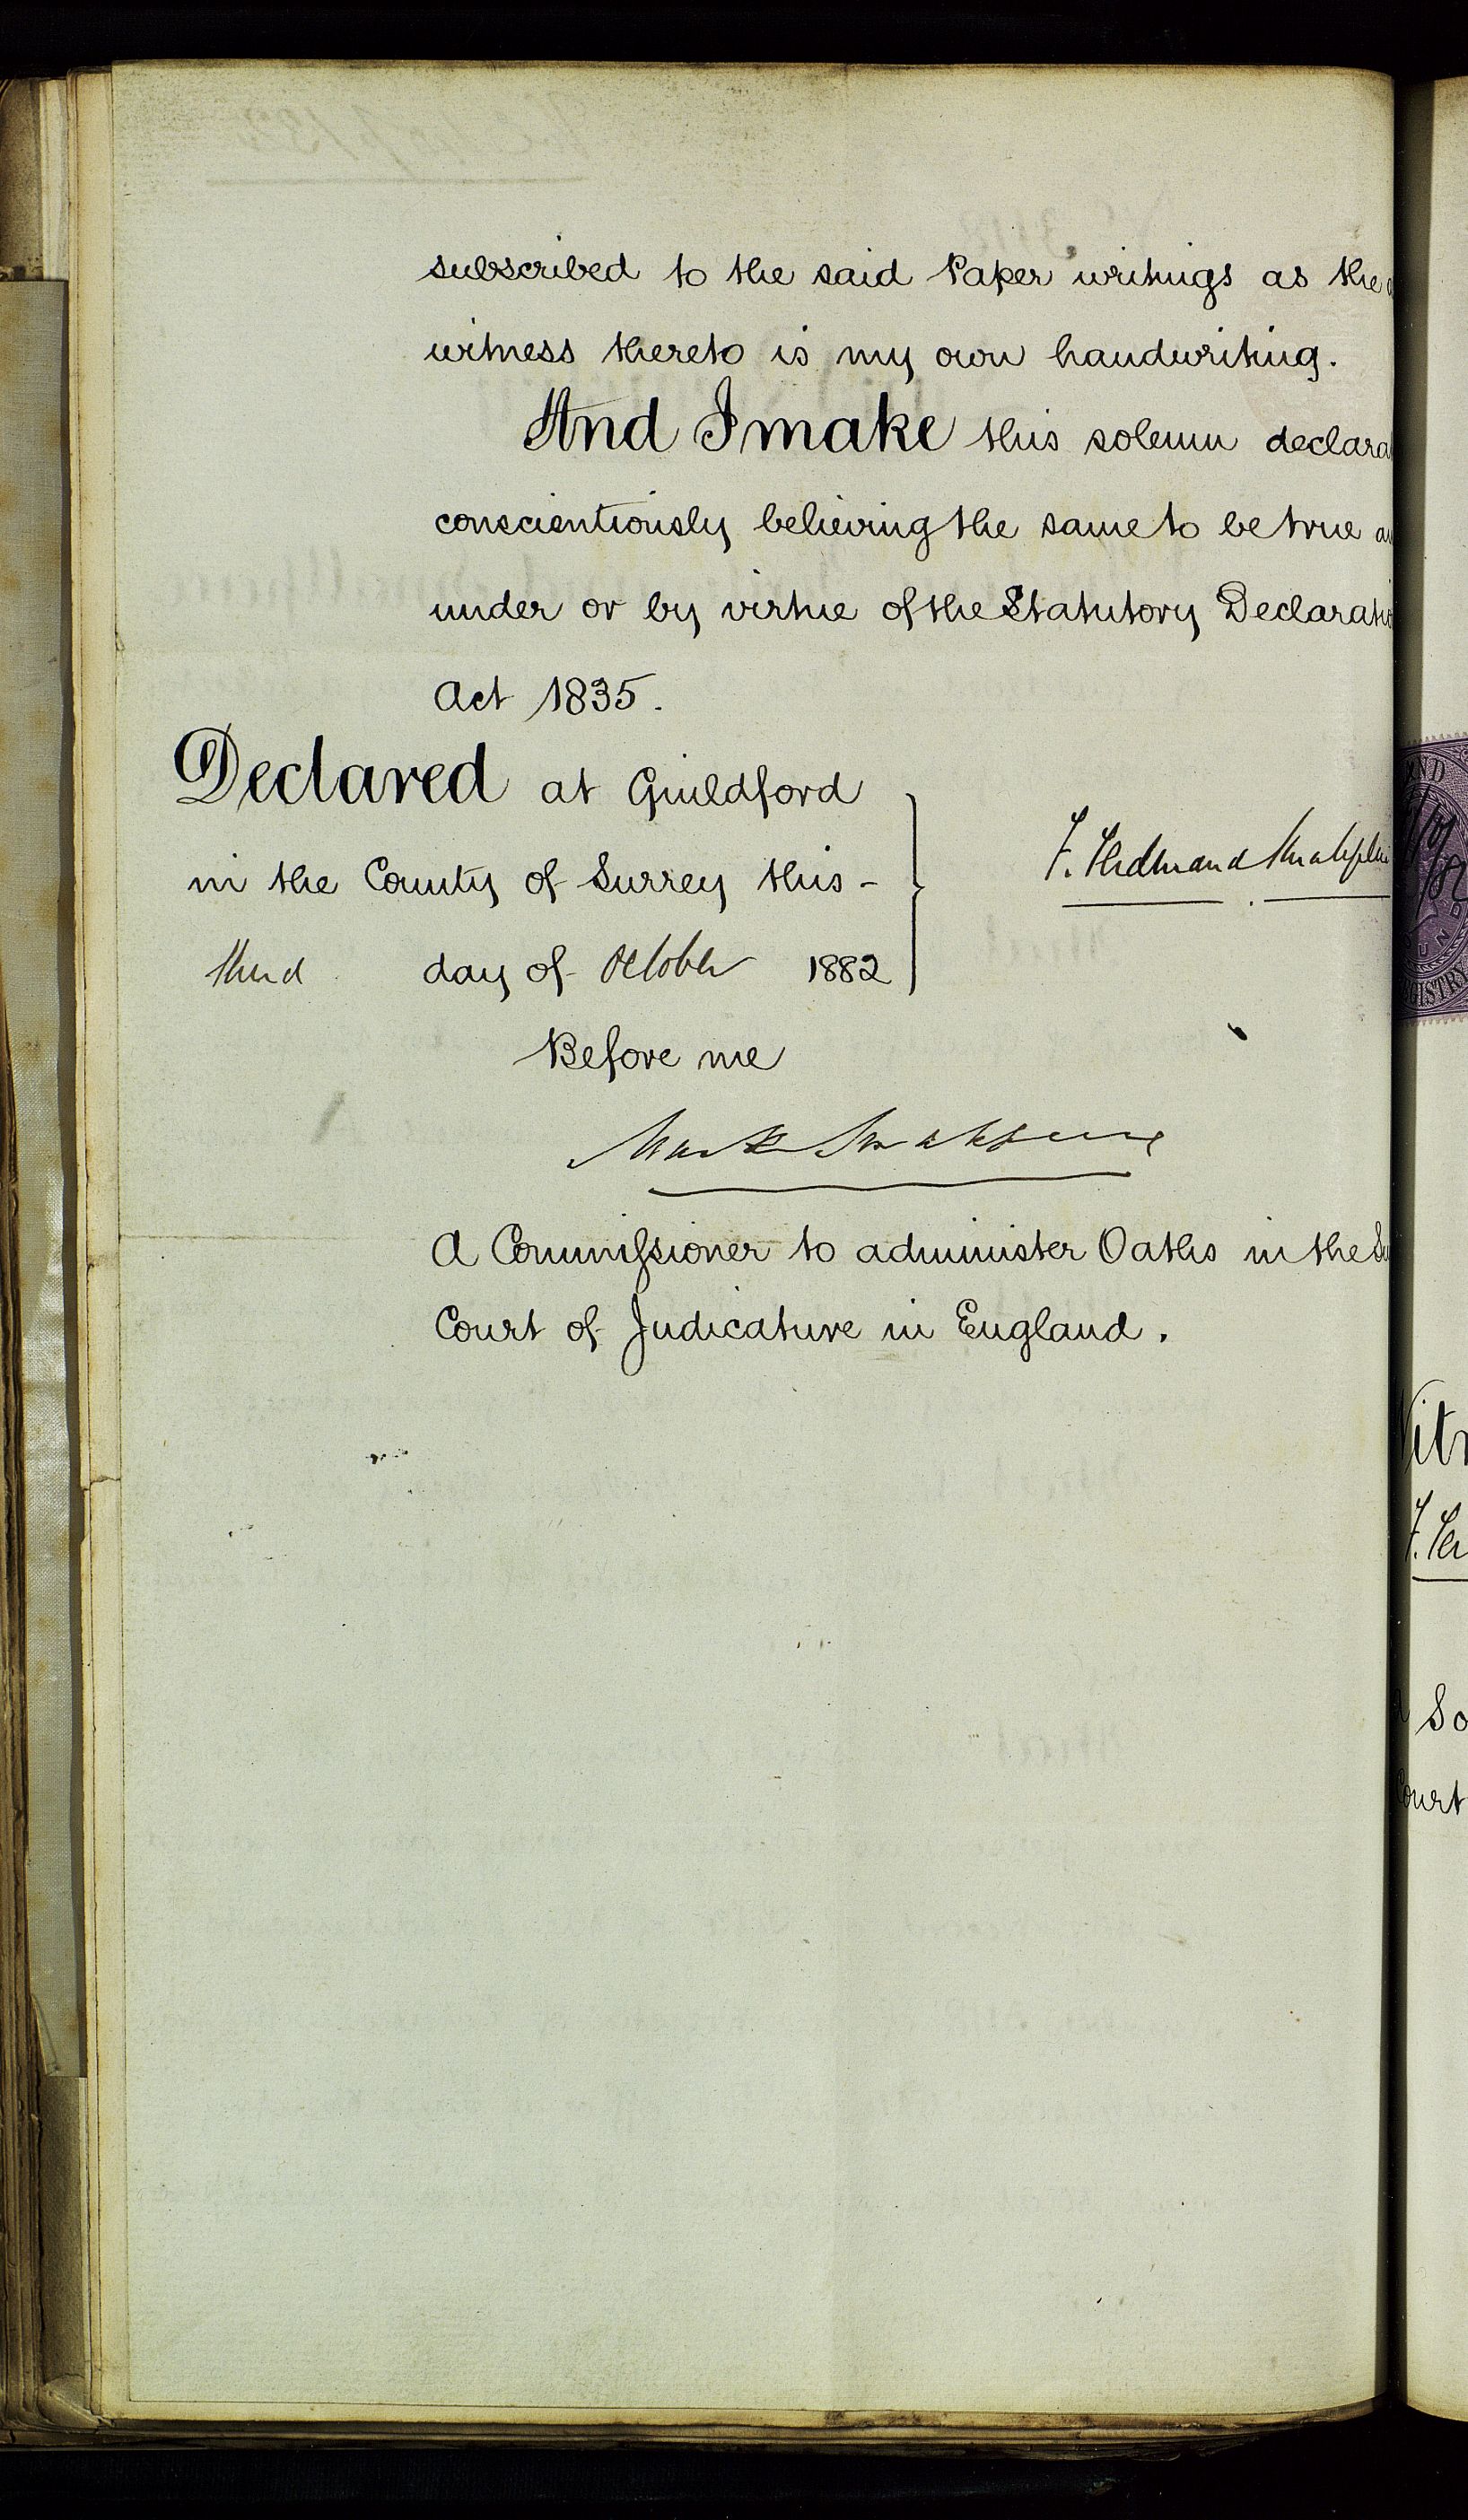 subscribed to the said Paper writings as the
witness thereto is my own handwriting.
And I make this solemn declara
conscientiously believing the same to be true a
under or by virtue of the Statutory Declaratio
Act 1835.
Declared at Guildford
in the County of Surrey this -
third day of October 1882
F. Ferdinand Smallpeice
Before me
Mark Smallpeice
A Commissioner to administer Oaths in the Su
Court of Judicature in England.